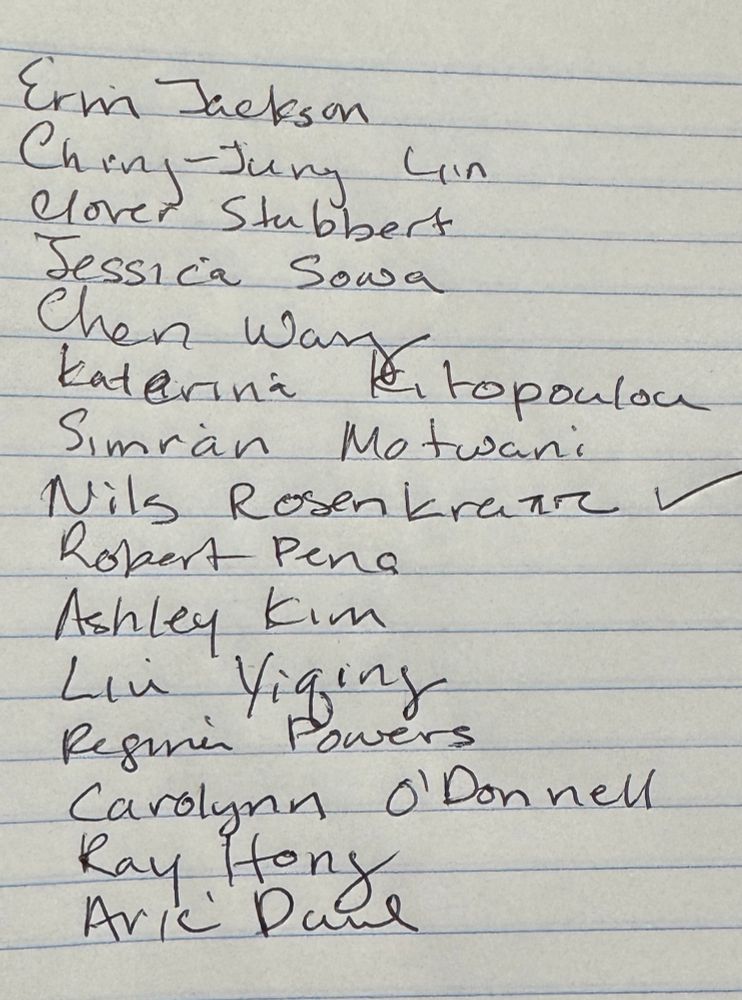 Erin Jackson
Ching-Jung Lin
Clover Stubbert
Jessica Sowa
Chen Wang
Katerina Kitopoulou
Simran Motwani
Nils Rosenkranz ✓
Robert Pena
Ashley Kim
Liu Yiqing
Regina Powers
Carolynn O'Donnell
Ray Hong
Aric